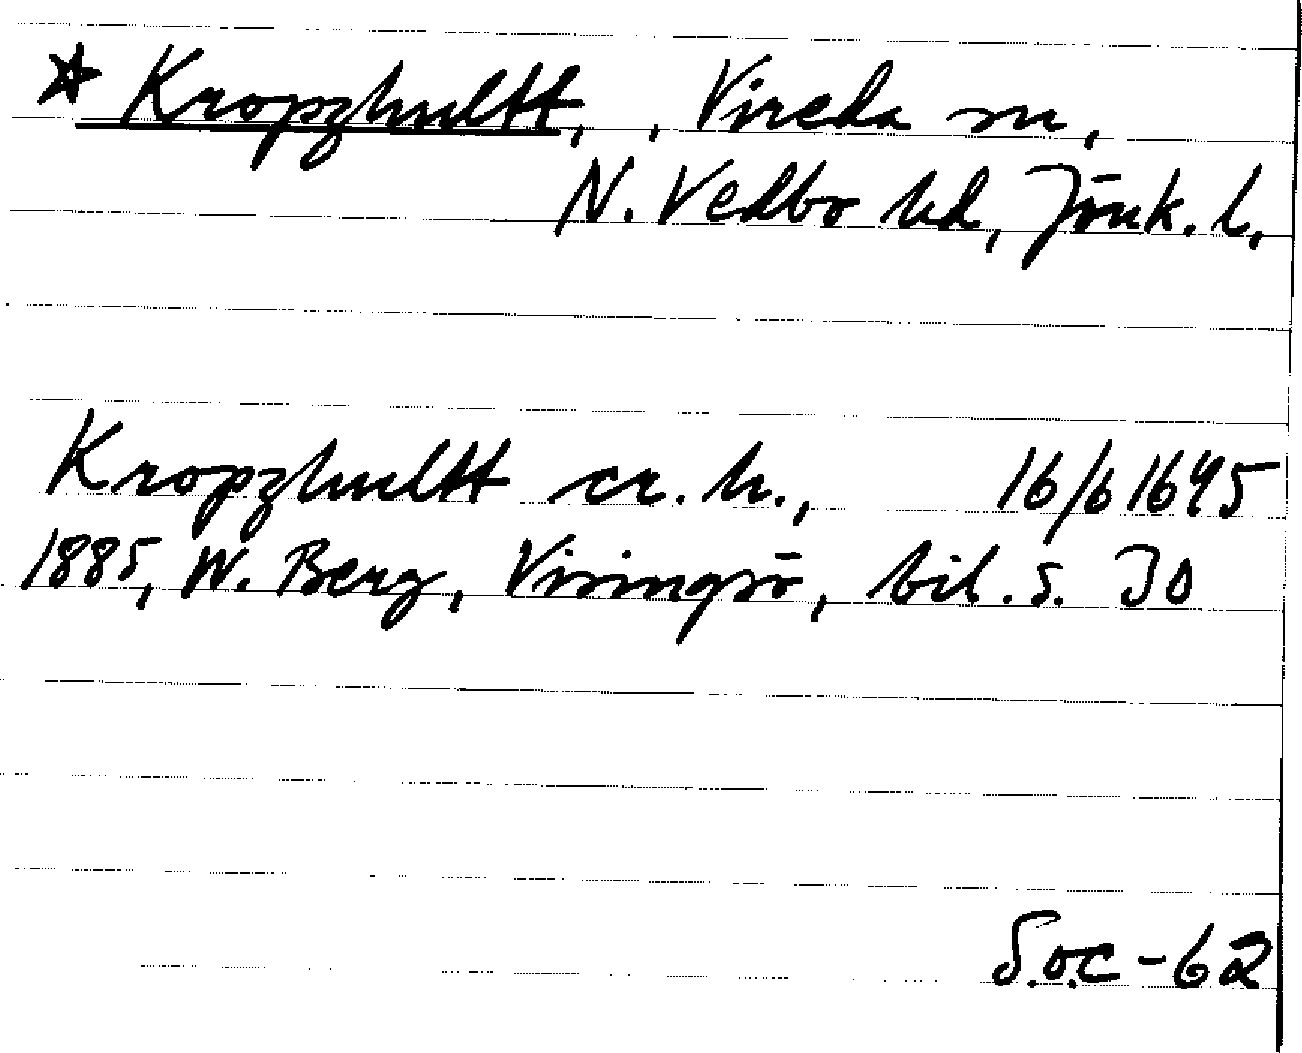 ☆ Kropzhultt, , Vireda sn,
N. Vedbo hd, Jönk. l.
Kropzhultt cr. h., 16/6 1645
1885, W. Berg, Visingsö, bil. s. 30
S.o.c - 62